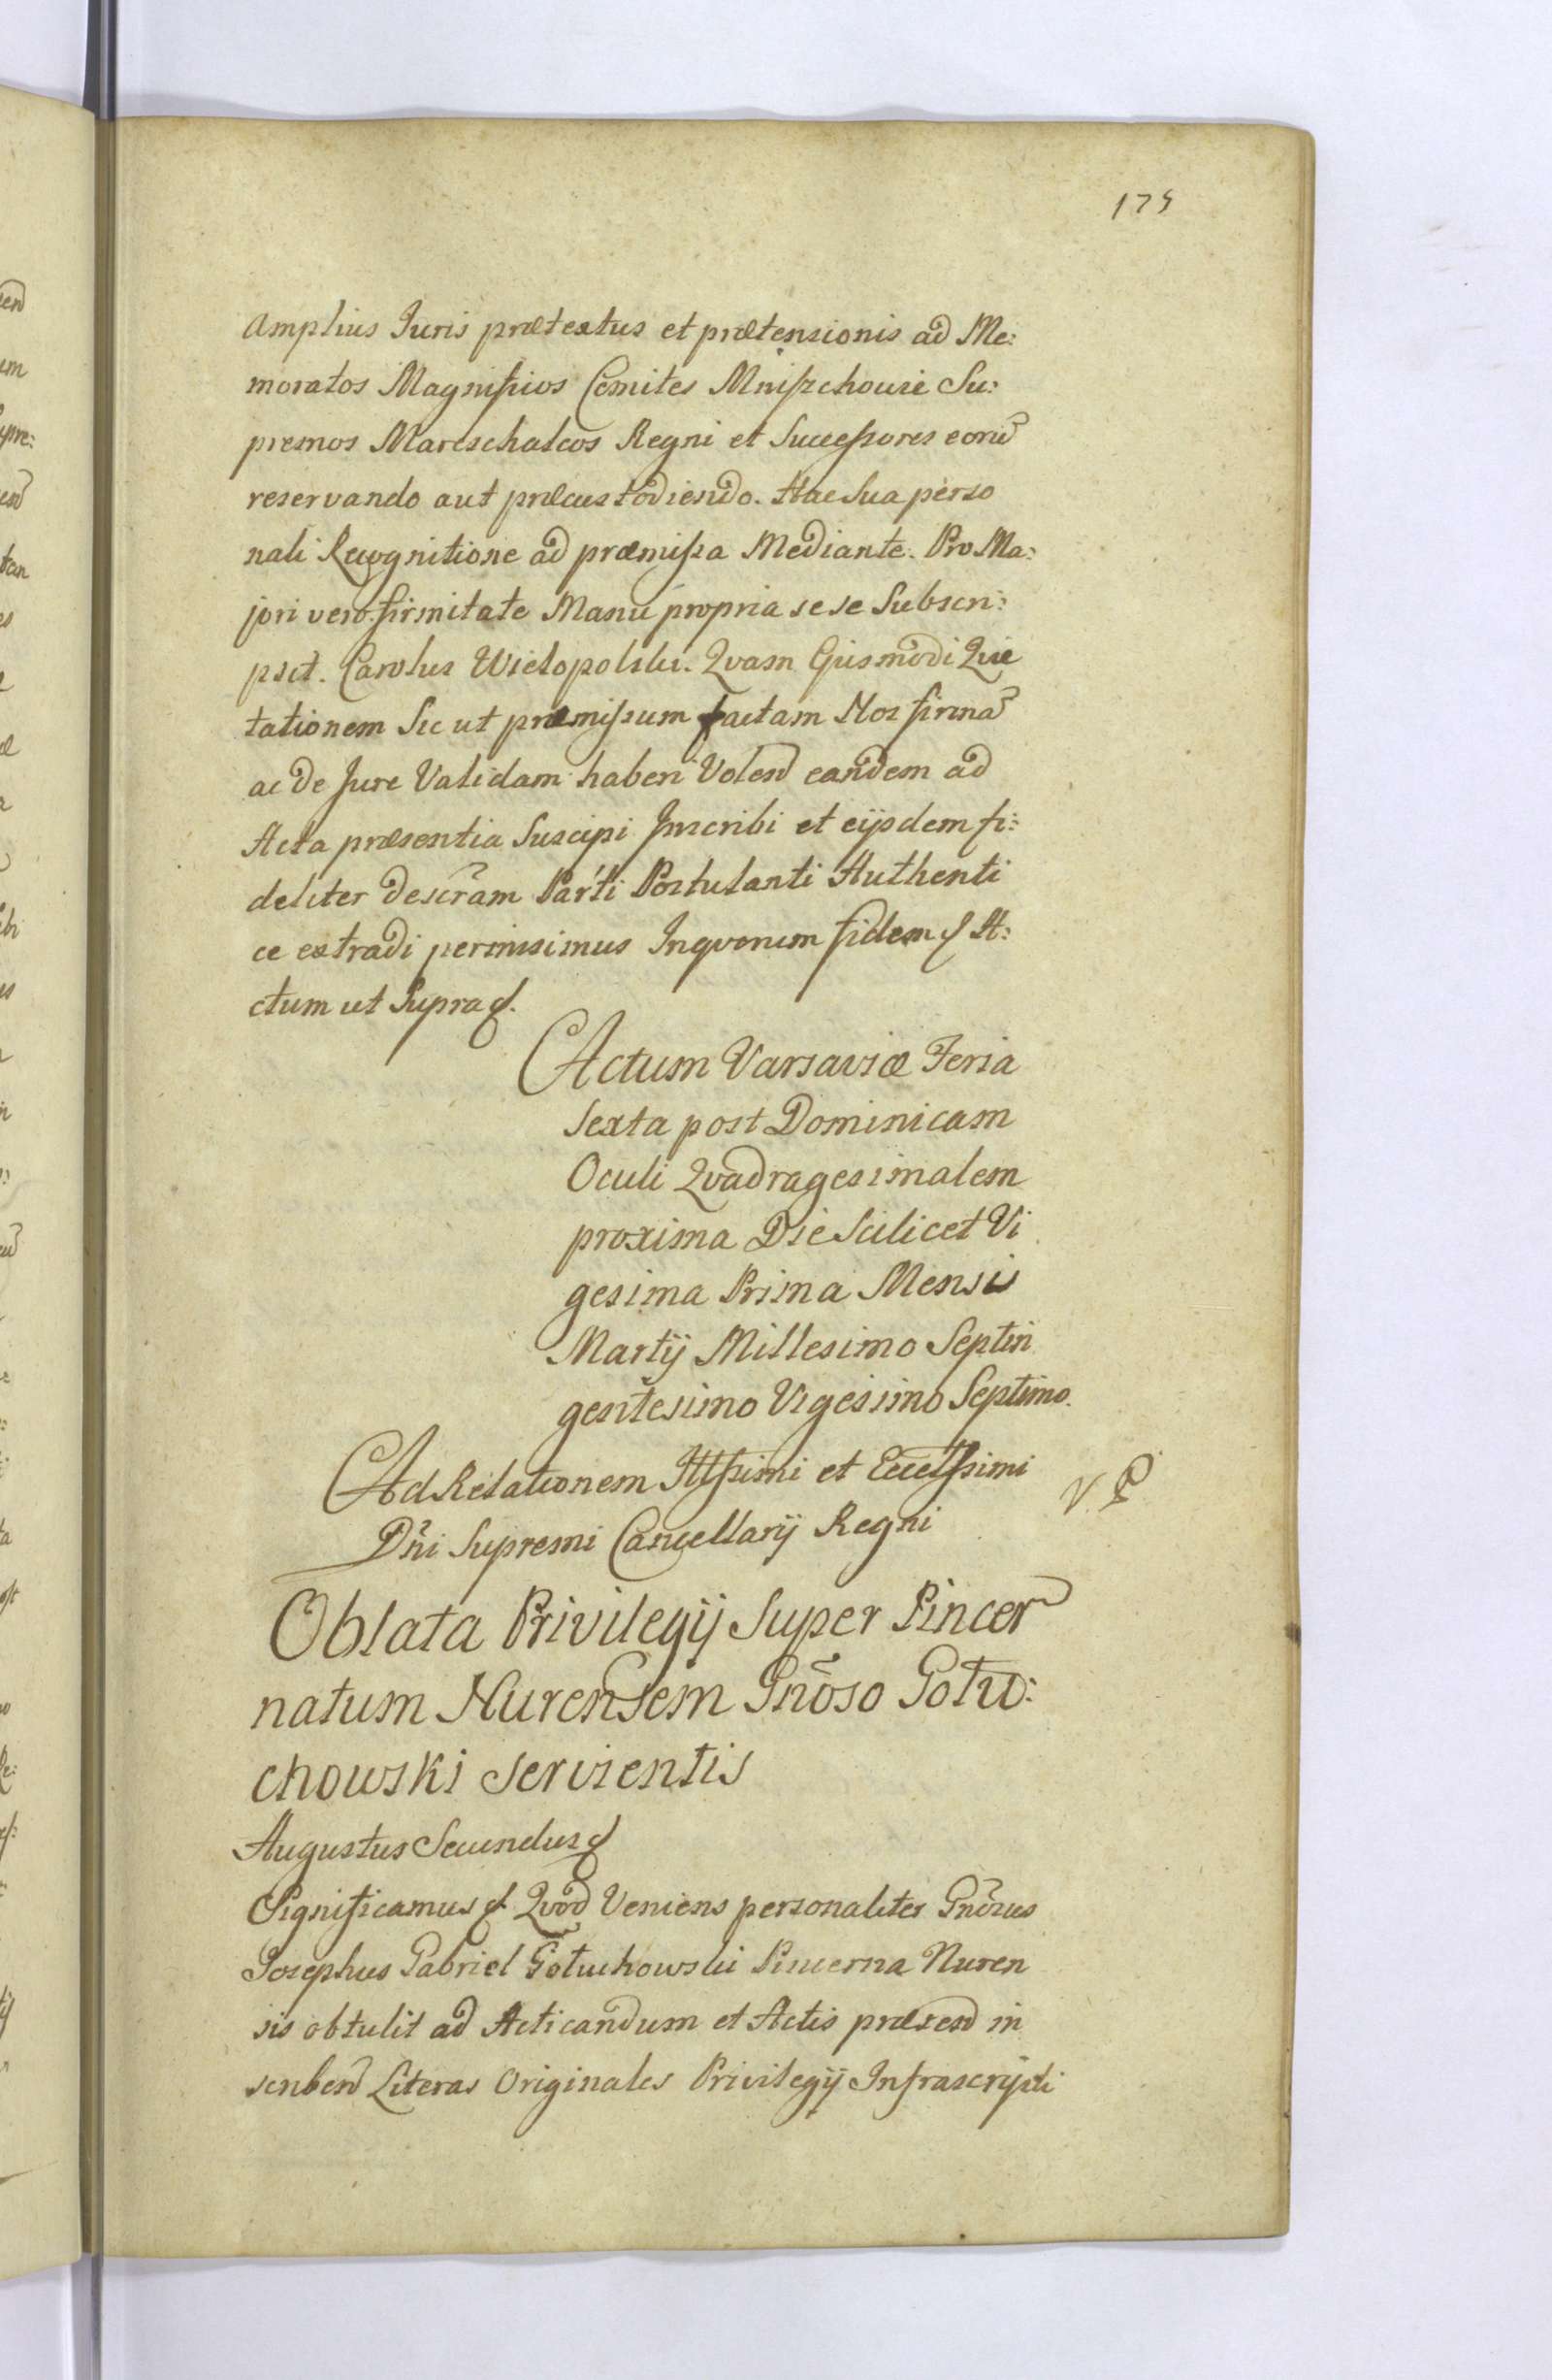 175
Amplius Juris prætextus et prætensionis ad Me:
moratos Magnificos Comites Mniszchowie Su:
premos Mareschalcos Regni et Successores eorũ
reservando aut præcustodiendo. Hac Sua perso
nali Recognitione ad præmissa Mediante. Pro Ma:
jori vero firmitate Manu propria sese Subscri:
psit. Carolus Wielopolski. Qvam Ejusmodi Qvie
tationem Sic ut præmissum factam Nos firmã
ac de Jure Validam haberi Volend eandem ad
Acta præsentia Suscipi Inscribi et eijsdem fi:
deliter descrãm Parti Postulanti Authenti
ce extradi permisimus Inqvorum fidem & A:
ctum ut Supra &.
Actum Varsaviæ Feria
Sexta post Dominicam
Oculi Qvadragesimalem
proxima Die Scilicet Vi
gesima Prima Mensis
Martij Millesimo Septin
gentesimo Vigesimo Septimo.
Ad Relationem Illssimi et Eccellssimi
Dñi Supremi Cancellarij Regni
V. P.
Oblata Privilegij Super Pincer
natum Nurensem Gñoso Gotu:
chowski servientis
Augustus Secundus &
Significamus & Qvod Veniens personaliter Gñosus
Josephus Gabriel Gotuchowski Pincerna Nuren
sis obtulit ad Acticandum et Actis præsend in
scribend Literas Originales Privilegij Infrascripti